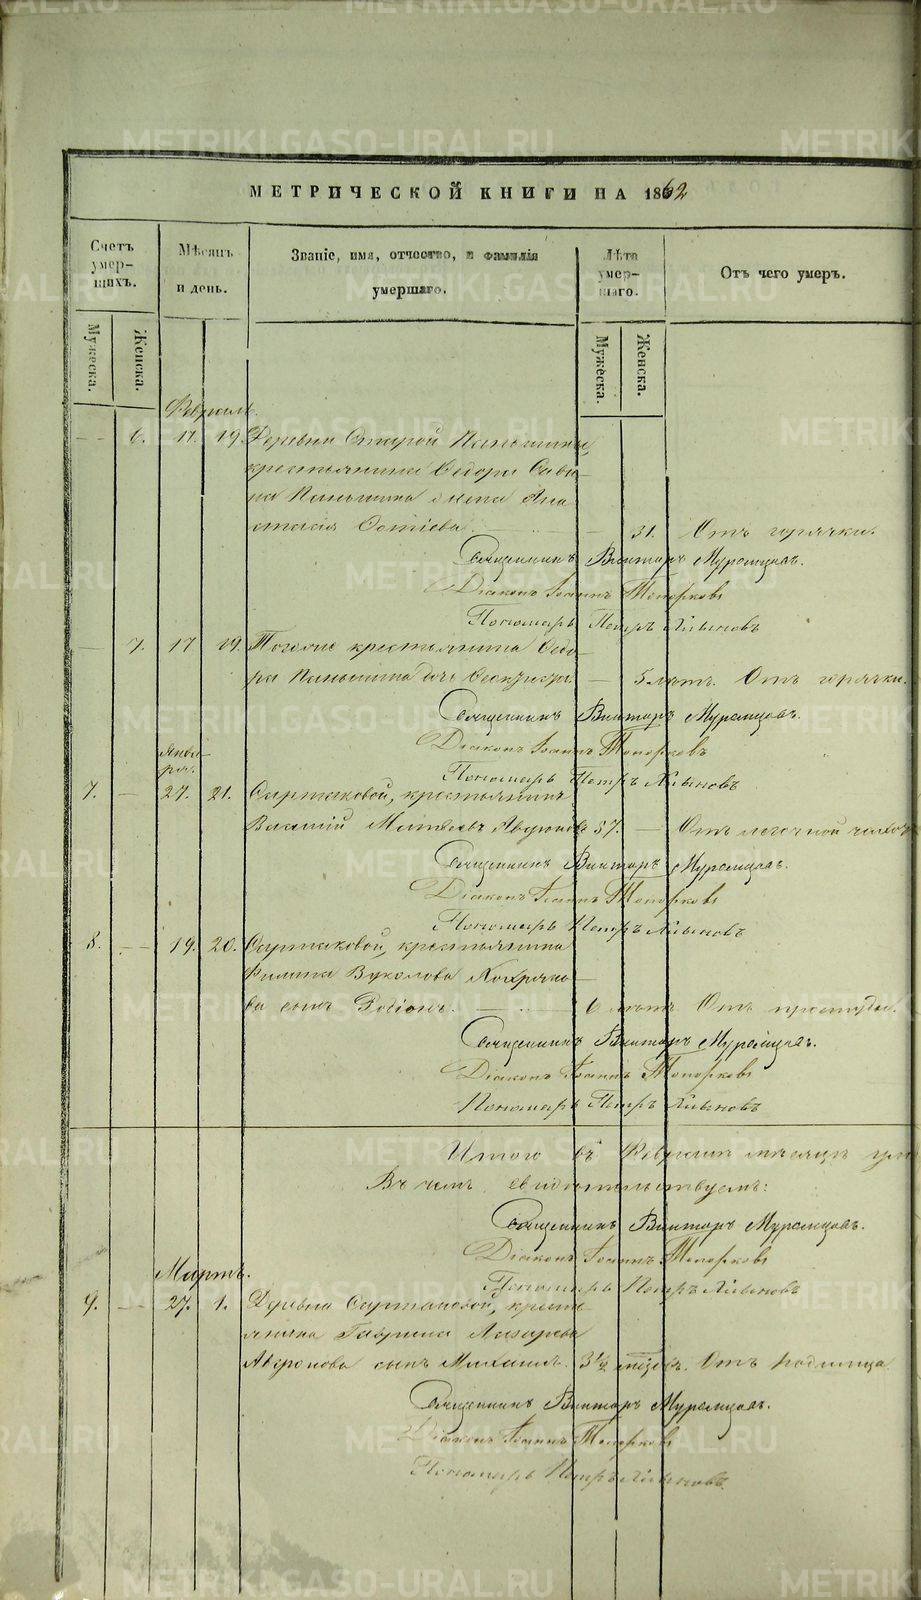 МЕТРИЧЕСКОЙ КНИГИ НА 1862
Счетъ умер- шихъ.
Мѣсяцъ и день.
Званіе, имя, отчество, и фамилія умершаго.
Лѣта умер- шаго.
Отъ чего умеръ.
Мужеска.
Женска.
Мужеска.
Женска.
Февраль.
— 6. 17. 19. Деревни Старой Паньшины,
крестьянина Ѳедора Савы-
на Паньшина жена Ана-
стасія
— 31. Отъ горячки.
Священникъ Викторъ Муромцовъ.
Діаконъ Іоаннъ Топорковъ
Пономарь Петръ Хлыновъ
— 7. 17 19. Тогоже крестьянина Ѳедо-
ра Паньшина дочь — 5 лѣтъ. Отъ горячки.
Священникъ Викторъ Муромцовъ.
Діаконъ Іоаннъ Топорковъ
Пономарь Петръ Хлыновъ
Янва-
ря.
7. — 27. 21. крестьянинъ
Василій Матвѣевъ 57. — Отъ
Священникъ Викторъ Муромцовъ.
Діаконъ Іоаннъ Топорковъ
Пономарь Петръ Хлыновъ
8. — 19. 20. крестьянина
Филипа Вуколова
ва сынъ Родіонъ. — 6 лѣтъ Отъ простуды.
Священникъ Викторъ Муромцовъ.
Діаконъ Іоаннъ Топорковъ
Пономарь Петръ Хлыновъ
Итого въ Февралѣ мѣсяцѣ
Въ чемъ свидѣтельствуемъ:
Священникъ Викторъ Муромцовъ.
Діаконъ Іоаннъ Топорковъ
Пономарь Петръ Хлыновъ
Мартъ.
9. — 27. 1. Деревни кресть-
янина Гаврила Лазарева
сынъ Михаилъ. 3½ Отъ родимца
Священникъ Викторъ Муромцовъ.
Діаконъ Іоаннъ Топорковъ
Пономарь Петръ Хлыновъ
METRIKI.GASO-URAL.RU